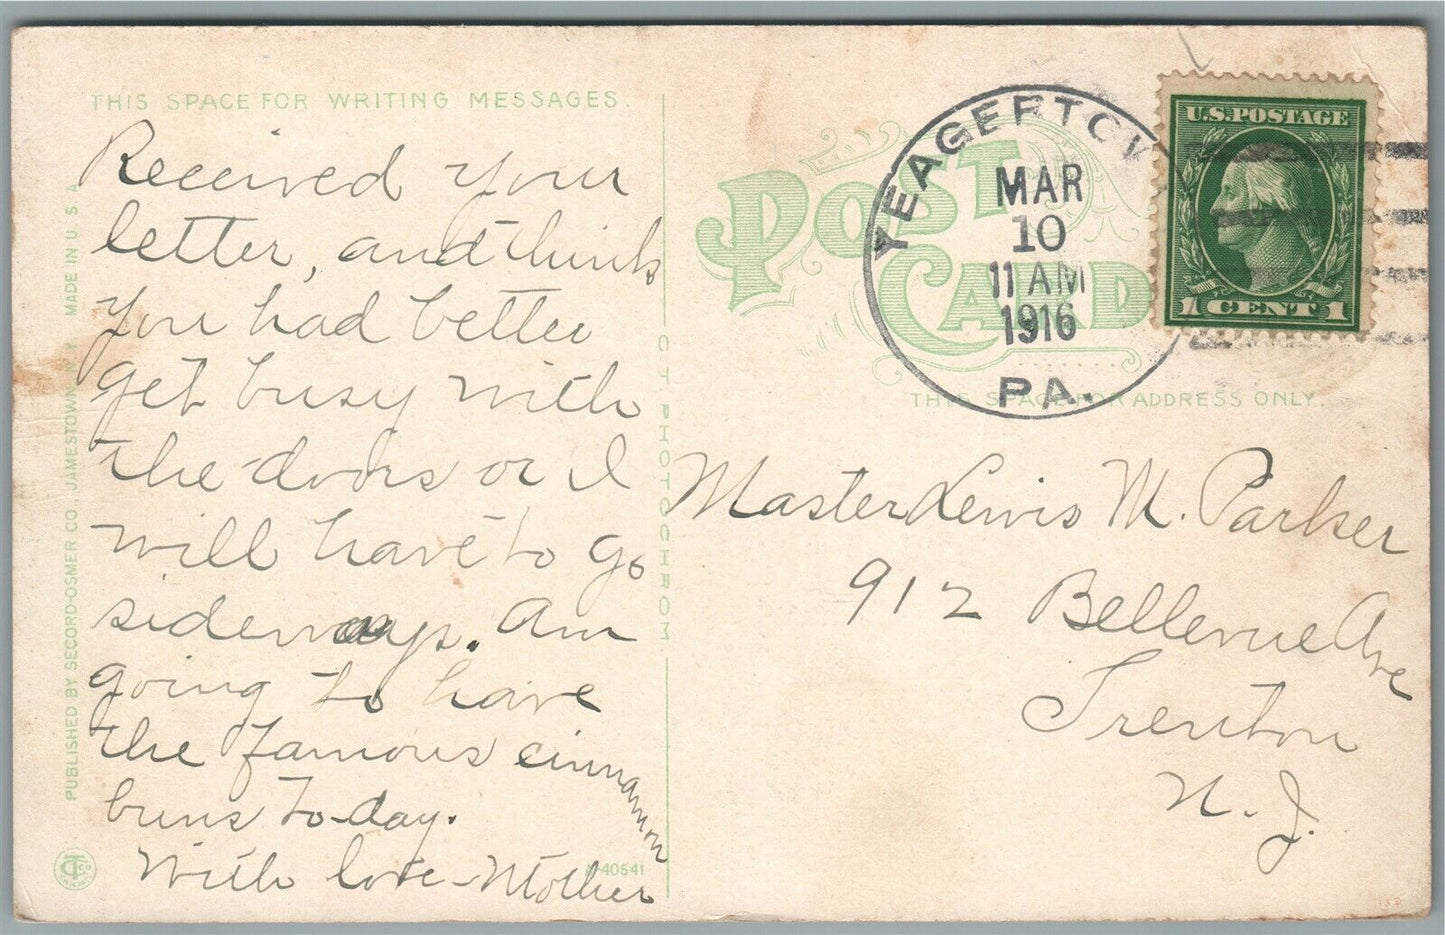 THIS SPACE FOR WRITING MESSAGES.
Received your
letter, and think
you had better
get busy with
the doors or I
will have to go
sideways. Am
going to have
the famous cinnamon
buns to-day.
With love - Mother
PUBLISHED BY SECORD-OSMER CO., JAMESTOWN, N. Y. MADE IN U S A
CT PHOTOCHROM
A-40641
POST CARD
THIS SPACE FOR ADDRESS ONLY.
YEAGERTOW
MAR
10
11 AM
1916
PA.
U.S. POSTAGE
1 CENT 1
Master Lewis M. Parker
912 Bellevue Ave
Trenton
N. J.